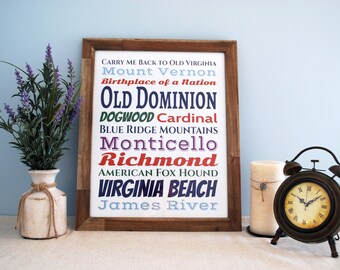 Carry Me Back to Old Virginia
Mount Vernon
Birthplace of a Nation
Old Dominion
Dogwood Cardinal
Blue Ridge Mountains
Monticello
Richmond
American Fox Hound
Virginia Beach
James River